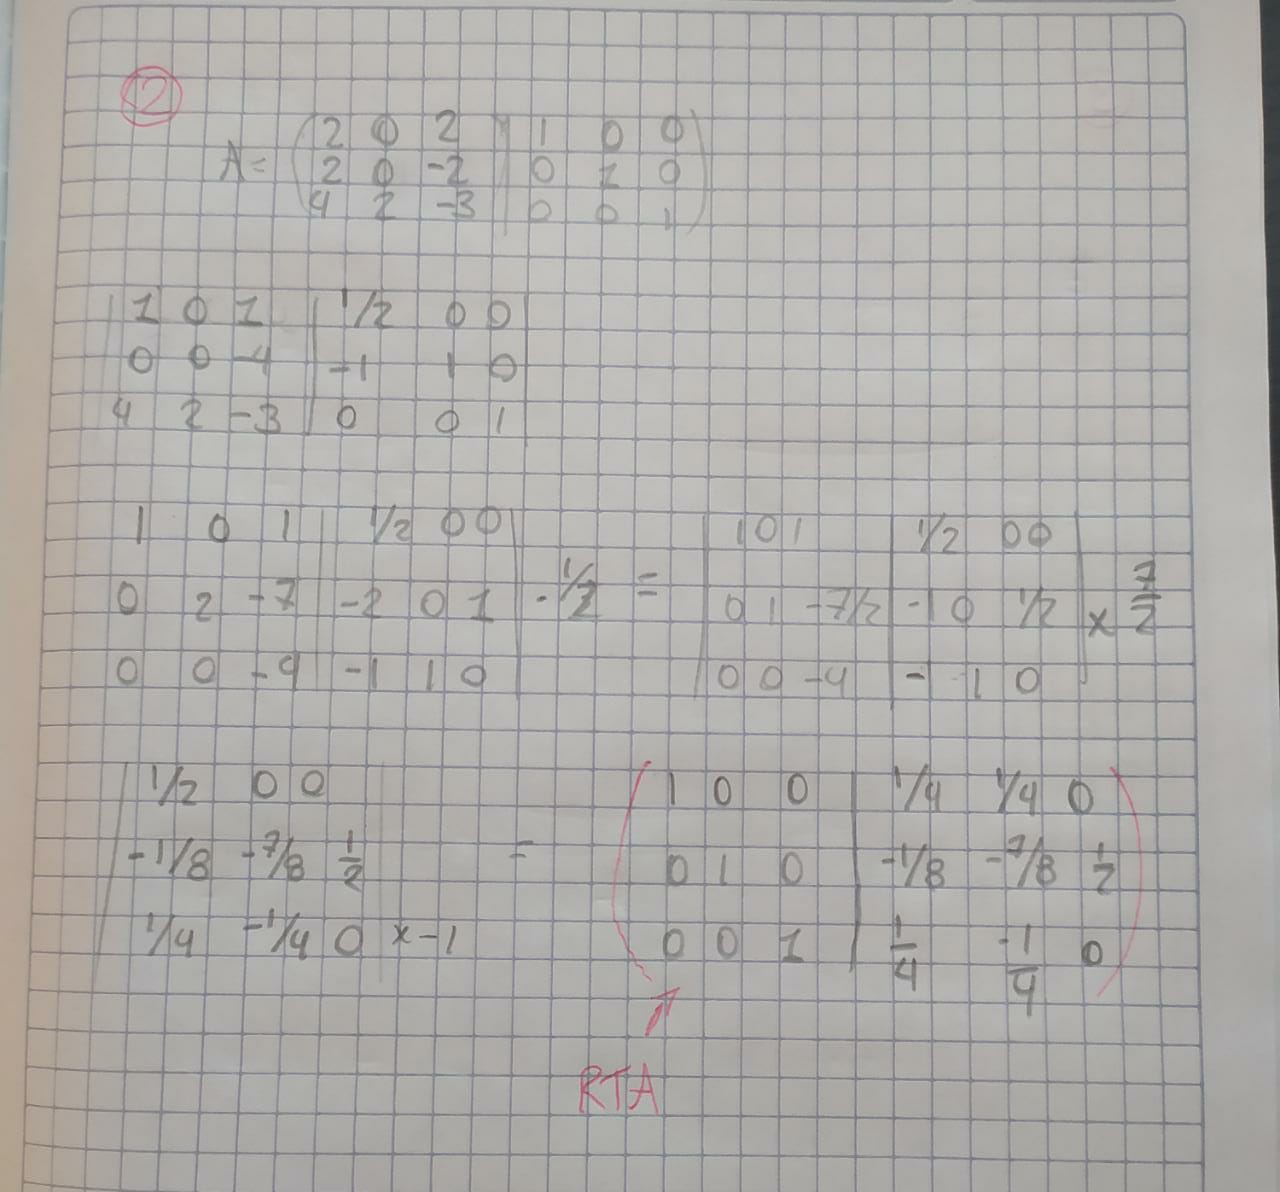 12
2 0 2 | 1 0 0
A= 2 0 -2 | 0 1 0
4 2 -3 | 0 0 1
1 0 1 | 1/2 0 0
0 0 -4 | -1 1 0
4 2 -3 | 0 0 1
1 0 1 | 1/2 0 0
0 2 -7 | -2 0 1 · 1/2 =
0 0 -4 | -1 1 0
1 0 1 | 1/2 0 0
0 1 -7/2 | -1 0 1/2 x 7/2
0 0 -4 | - 1 0
1/2 0 0
-1/8 -7/8 1/2 =
1/4 -1/4 0 x-1
1 0 0 | 1/4 1/4 0
0 1 0 | -1/8 -7/8 1/2
0 0 1 | 1/4 -1/4 0
RTA